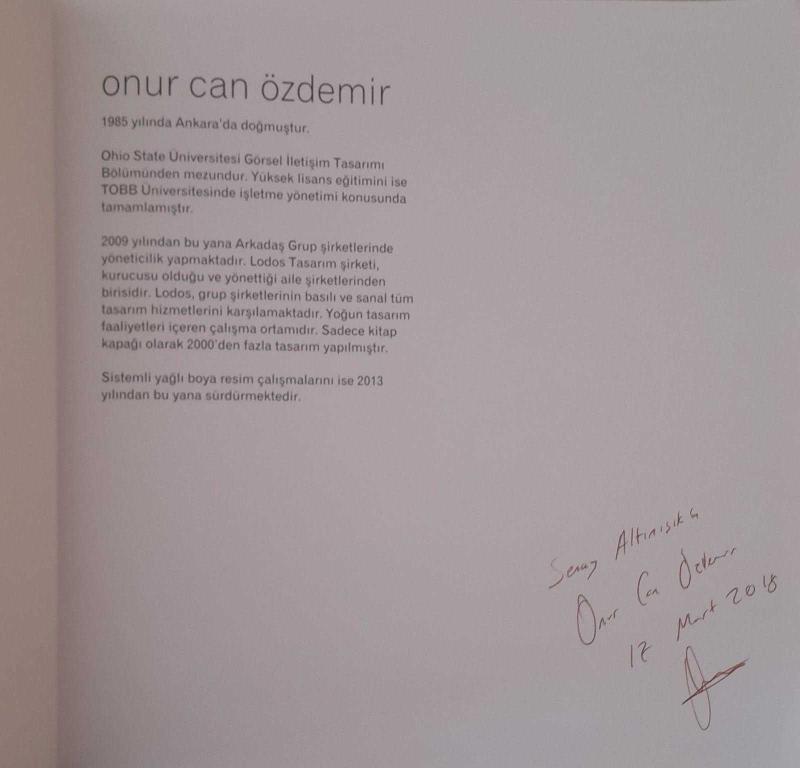 onur can özdemir
1985 yılında Ankara'da doğmuştur.
Ohio State Üniversitesi Görsel İletişim Tasarımı
Bölümünden mezundur. Yüksek lisans eğitimini ise
TOBB Üniversitesinde işletme yönetimi konusunda
tamamlamıştır.
2009 yılından bu yana Arkadaş Grup şirketlerinde
yöneticilik yapmaktadır. Lodos Tasarım şirketi,
kurucusu olduğu ve yönettiği aile şirketlerinden
birisidir. Lodos, grup şirketlerinin basılı ve sanal tüm
tasarım hizmetlerini karşılamaktadır. Yoğun tasarım
faaliyetleri içeren çalışma ortamıdır. Sadece kitap
kapağı olarak 2000'den fazla tasarım yapılmıştır.
Sistemli yağlı boya resim çalışmalarını ise 2013
yılından bu yana sürdürmektedir.
Altınışık'a
Onur Can Özdemir
Mart 2018